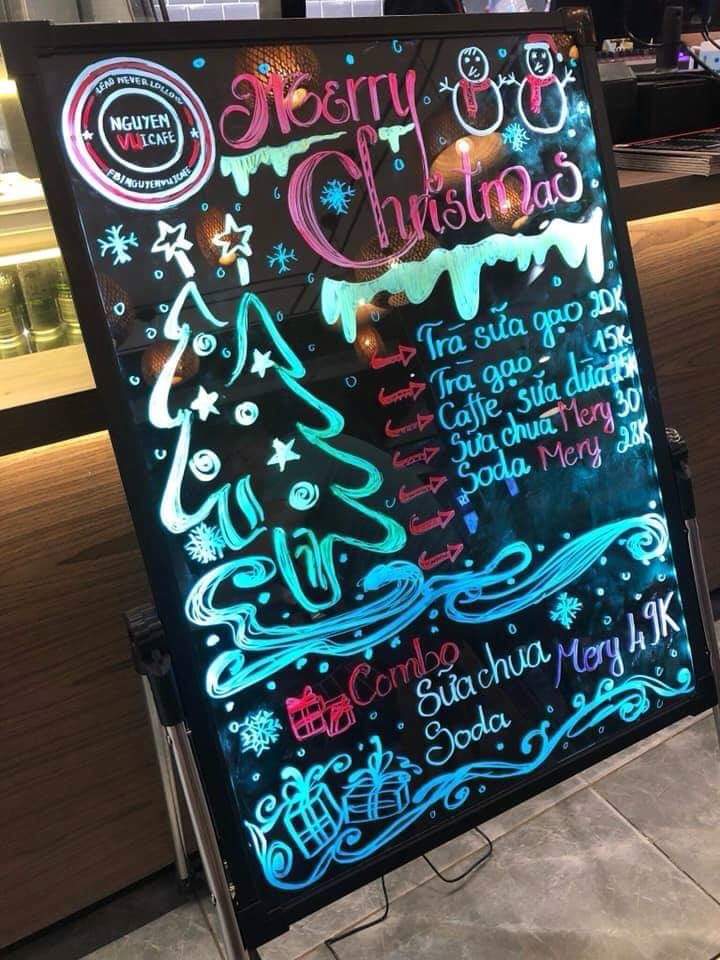 NGUYEN
VUI CAFE
FB|NGUYENVUICAFE
Merry
Christmas
Trà sữa gạo 20K
Trà gạo 15K
Caffe sữa dừa 25K
Sữa chua Mery 30K
Soda Mery 28K
Combo
Sữa chua Mery 49K
Soda